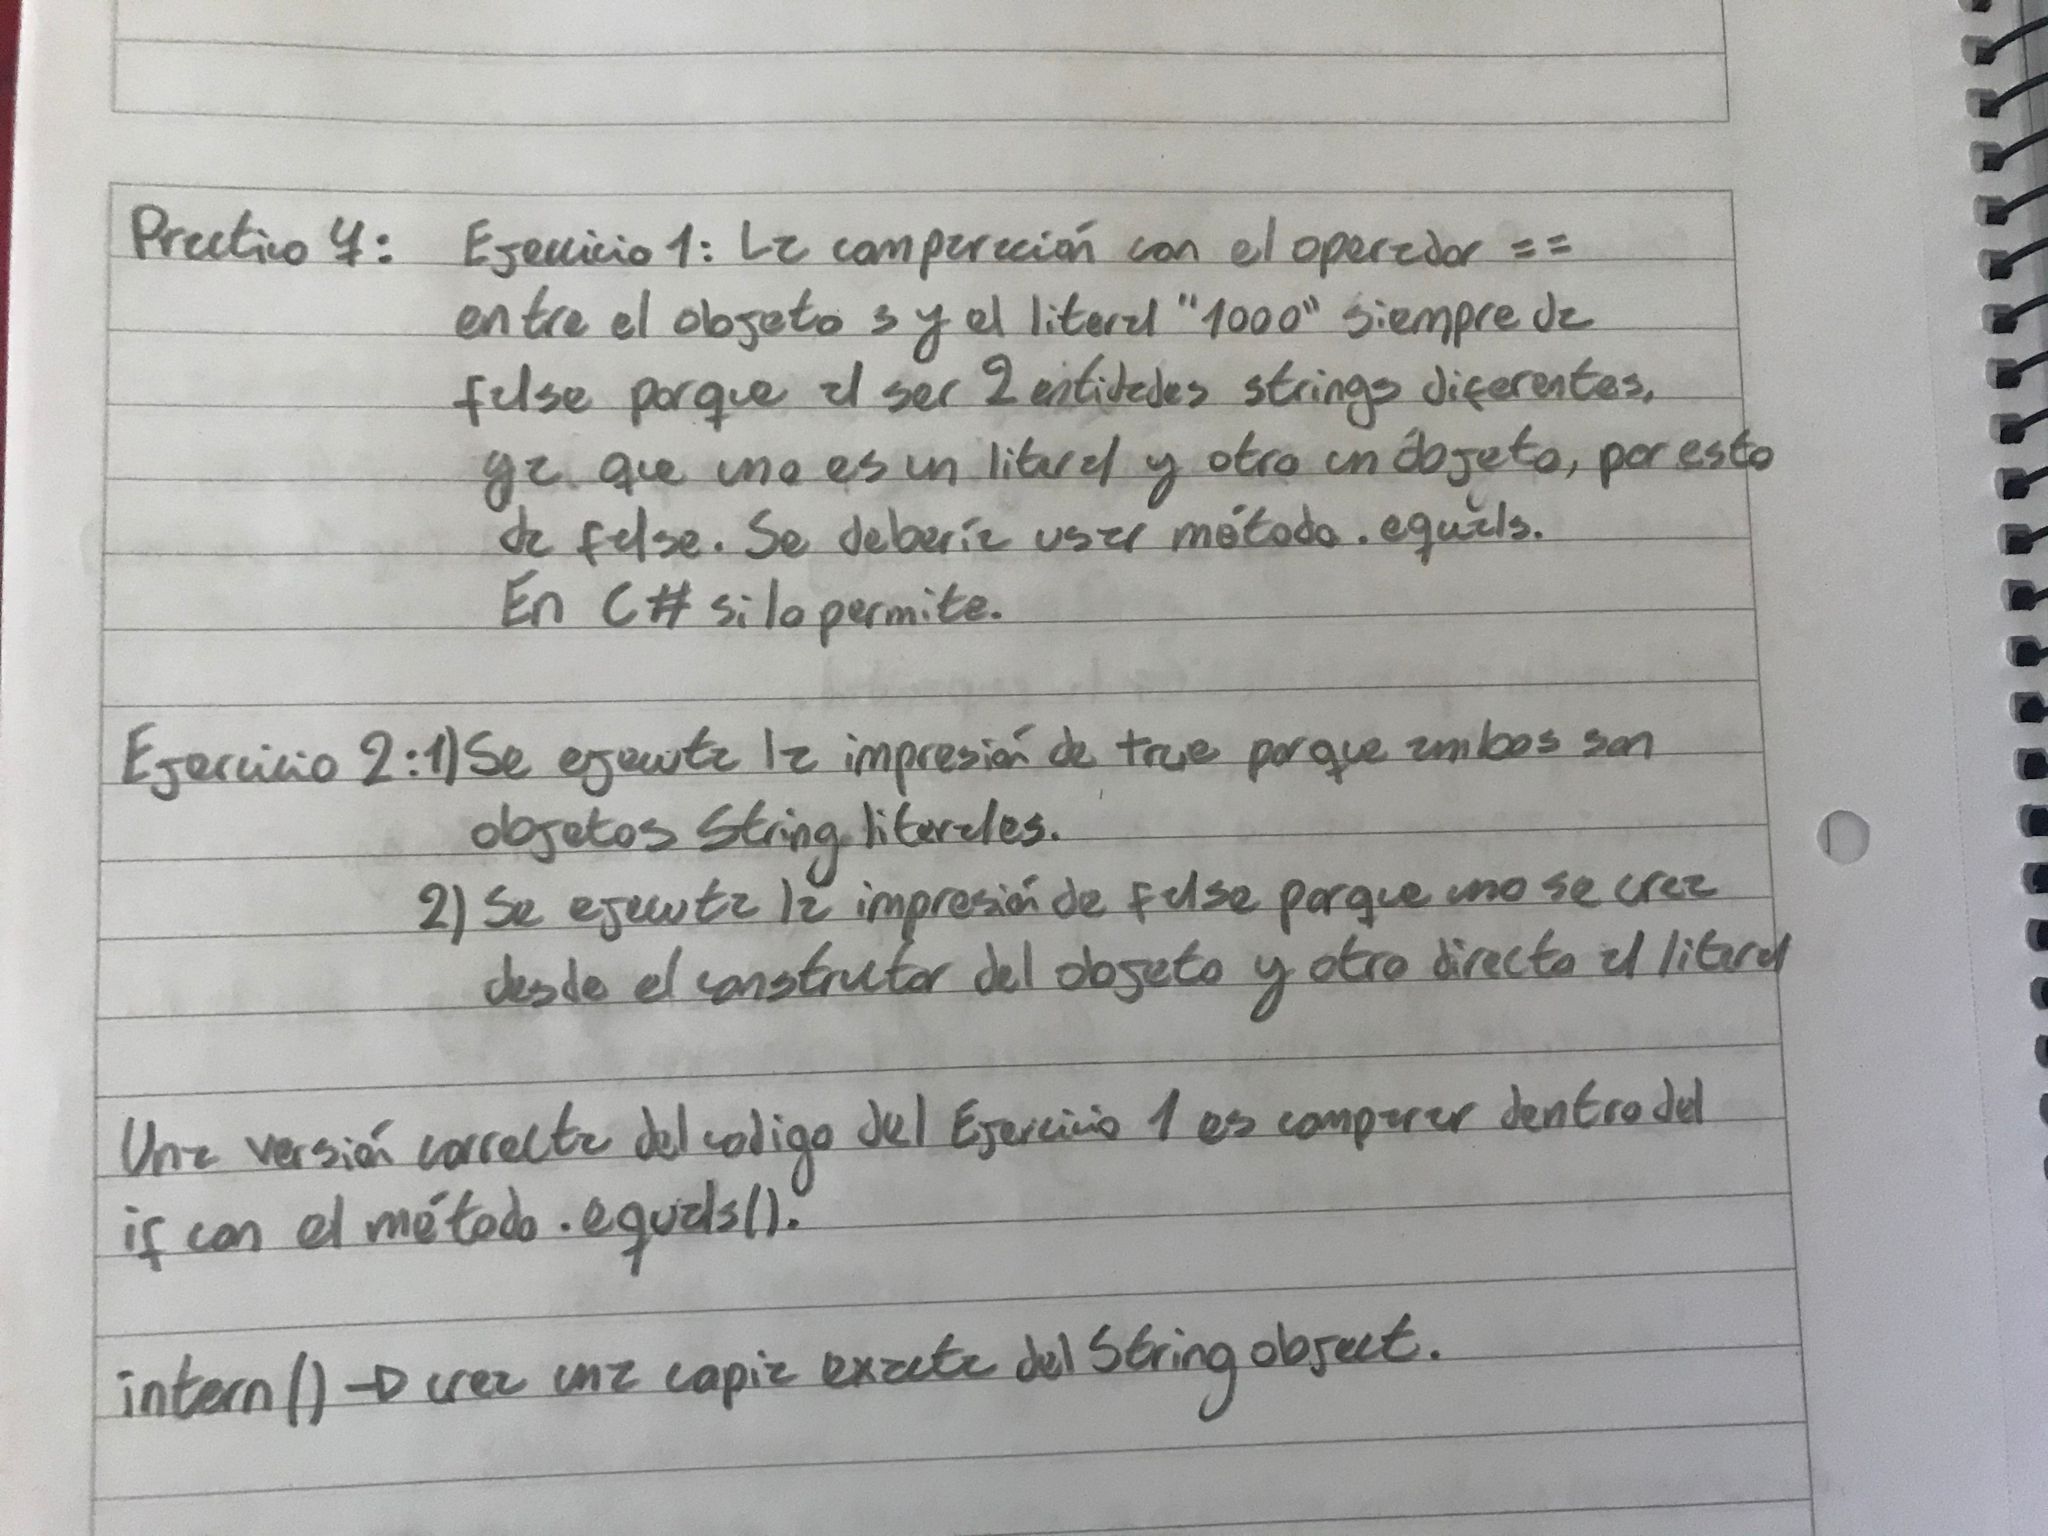 Practico 4: Ejercicio 1: La comparación con el operador ==
entre el objeto s y el literal "1000" siempre da
false porque al ser 2 entidades strings diferentes,
ya que uno es un literal y otro un objeto, por esto
da false. Se debería usar método .equals.
En C# si lo permite.
Ejercicio 2: 1) Se ejecuta la impresión de true porque ambos son
objetos String literales.
2) Se ejecuta la impresión de false porque uno se crea
desde el constructor del objeto y otro directo al literal
Una versión correcta del codigo del Ejercicio 1 es comparar dentro del
if con el método .equals().
intern() → crea una copia exacta del String object.